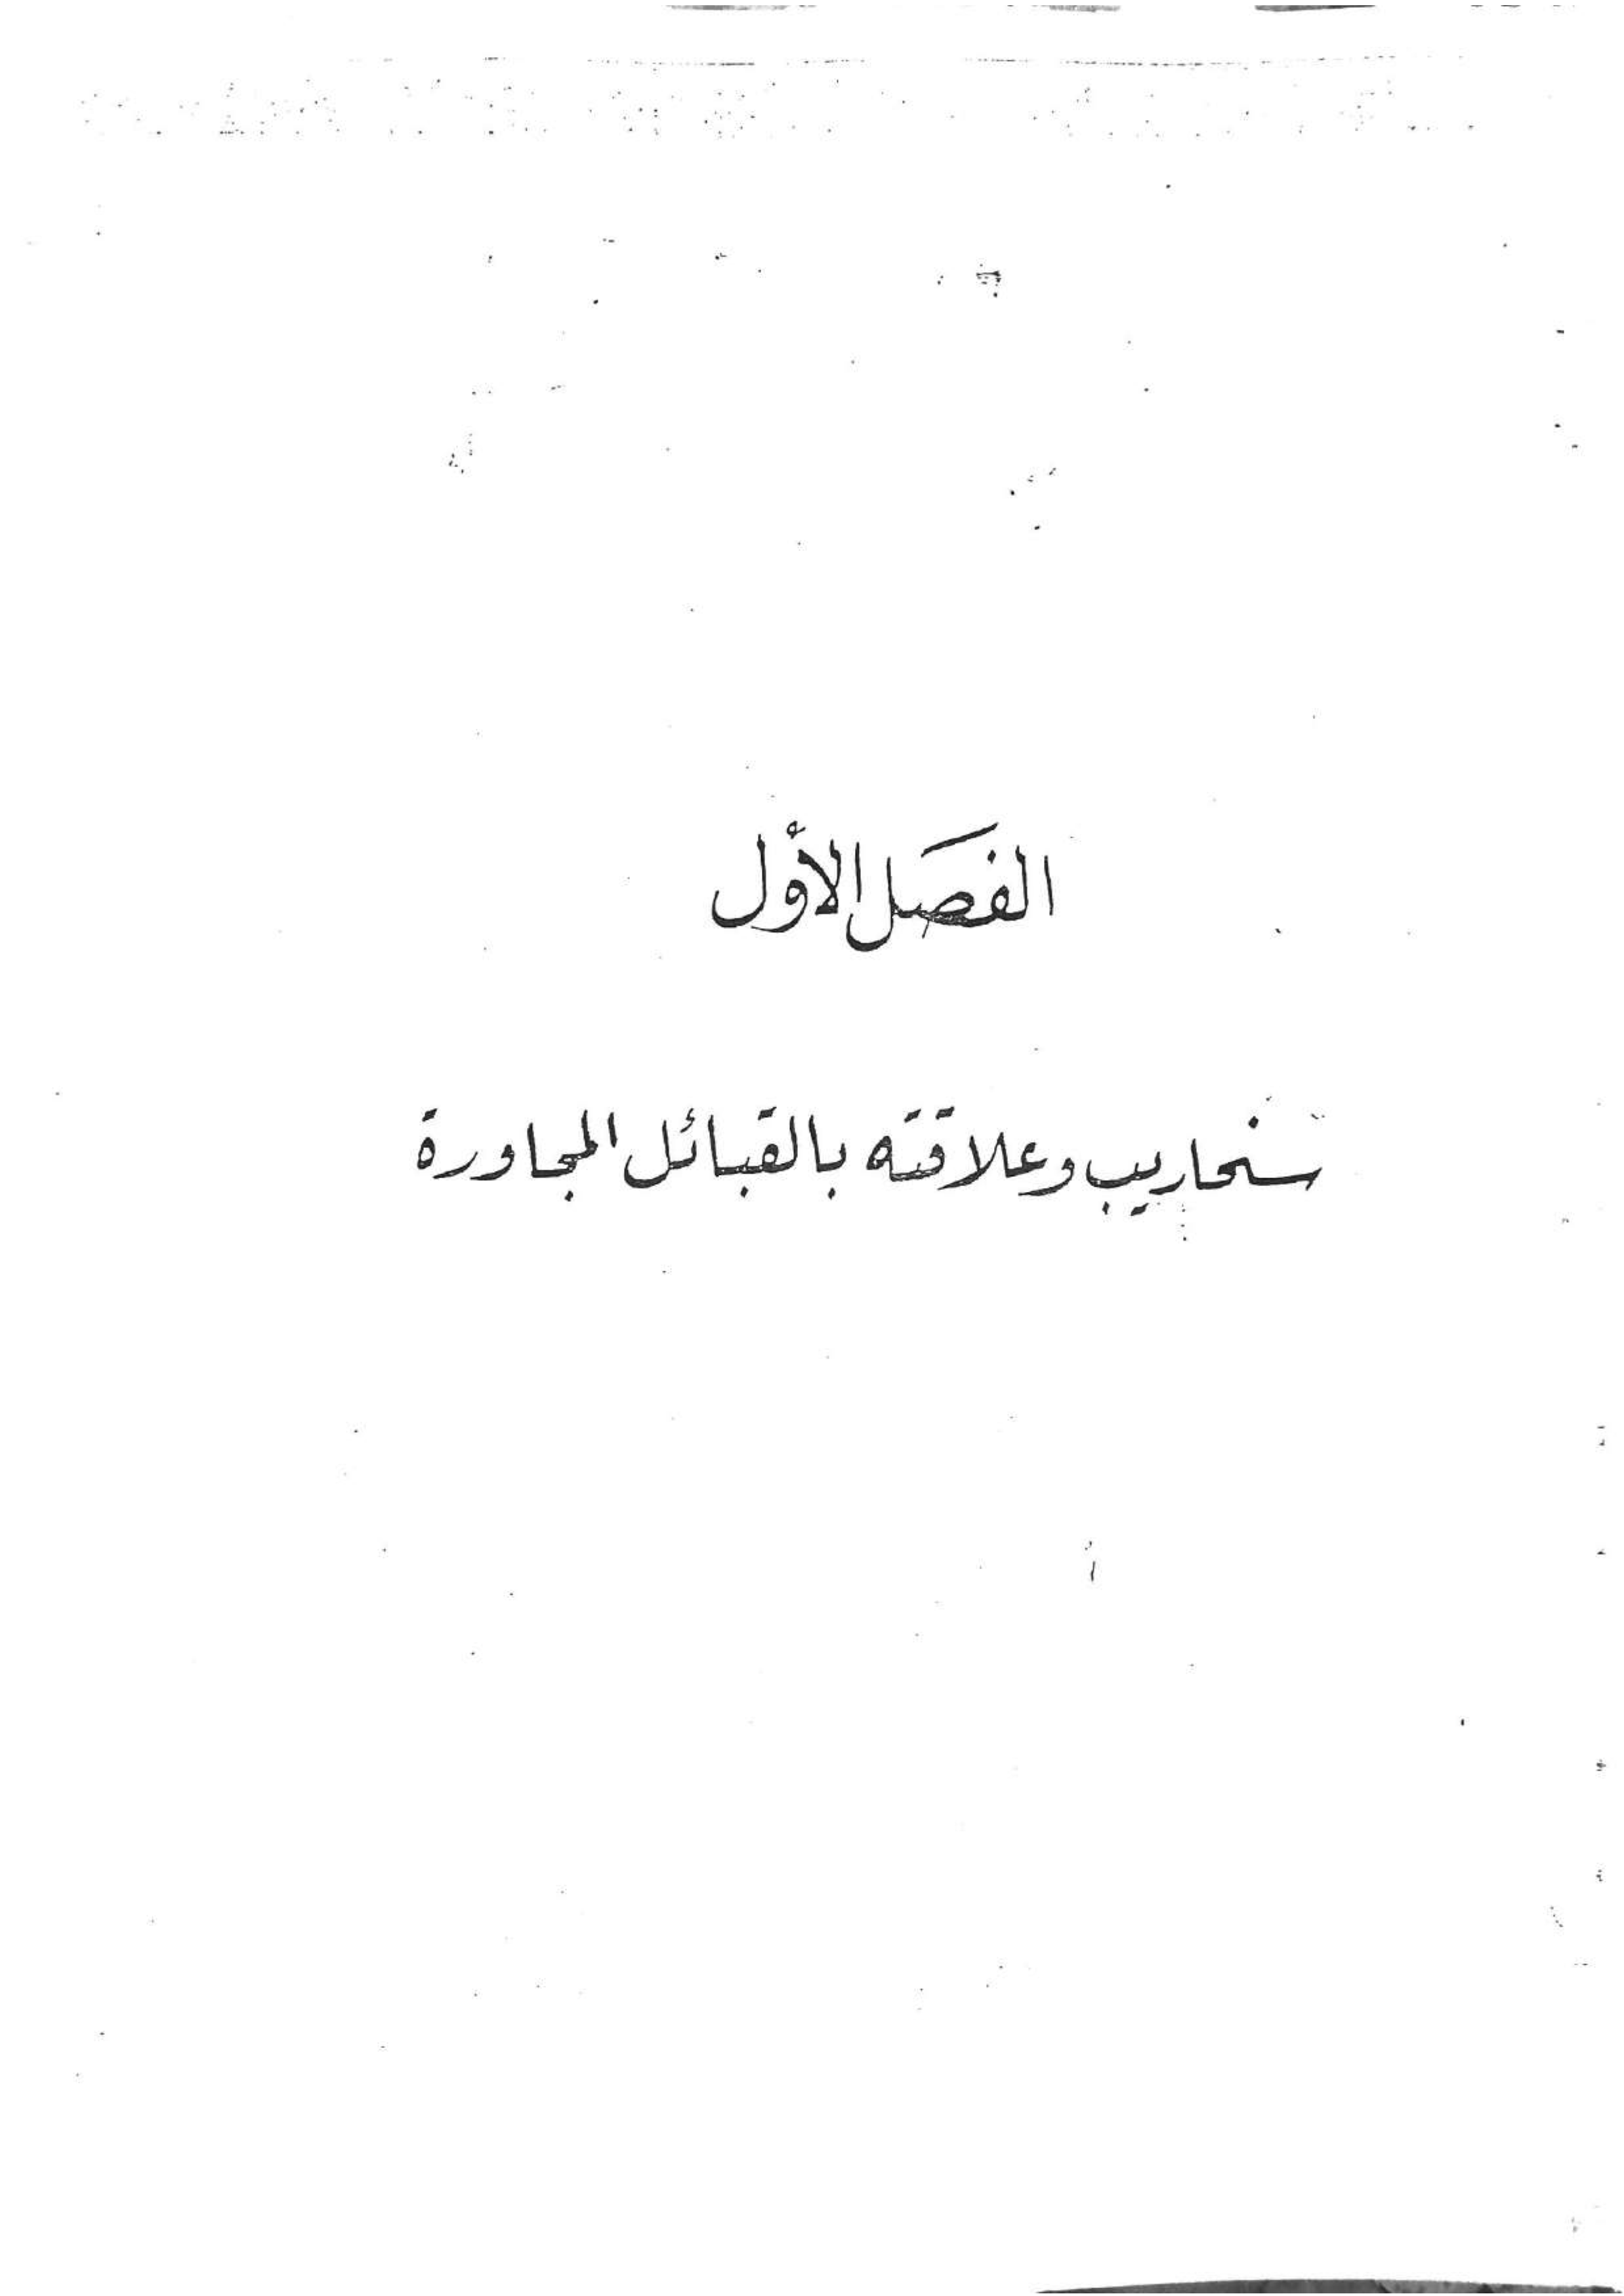 الفصل الأول
سنحاريب وعلاقته بالقبائل المجاورة